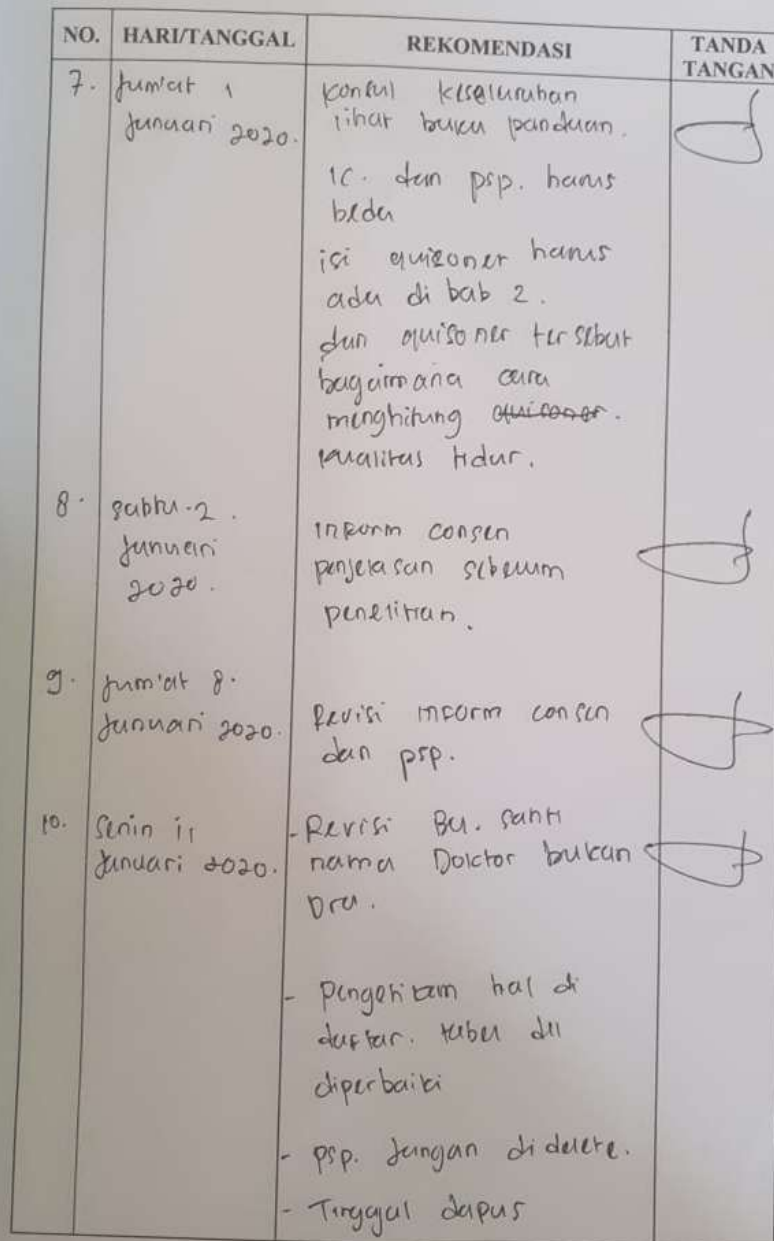 NO. HARI/TANGGAL REKOMENDASI TANDA TANGAN
7. Jum'at 1 Januari 2020.
Konsul keseluruhan
lihat buku panduan.
IC. dan psp. harus
beda
isi quizoner harus
ada di bab 2.
dan quisoner tersebut
bagaimana cara
menghitung quisoner.
kualitas tidur.
8. Sabtu 2. Januari 2020.
Inform consen
penjelasan sebelum
penelitian.
9. Jum'at 8. Januari 2020.
Revisi inform consen
dan psp.
10. Senin 11 Januari 2020.
- Revisi Bu. Santi
nama Doktor bukan
Dra.
- Pengetikam hal di
daftar. tabel dll
diperbaiki
- psp. Jangan didelete.
- Tinggal dapus